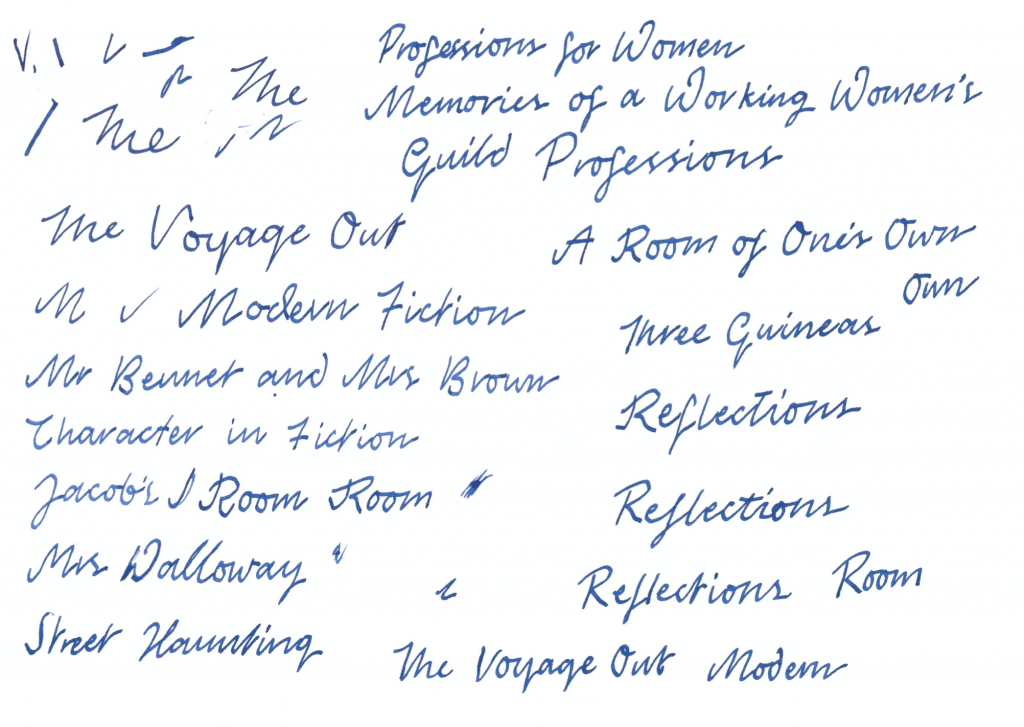 V.
The
The
The Voyage Out
M Modern Fiction
Mr Bennet and Mrs Brown
Character in Fiction
Jacob's Room Room
Mrs Dalloway
Street Haunting
Professions for Women
Memories of a Working Women's
Guild Professions
A Room of One's Own
Own
Three Guineas
Reflections
Reflections
Reflections Room
The Voyage Out Modern